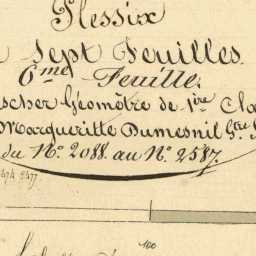 Plessix
Sept Feuilles.
6.me Feuille.
scher Géomètre de 1.ère Cla
Margueritte Dumesnil G.tre
du N.o 2088. au N.o 2587.
2477
100